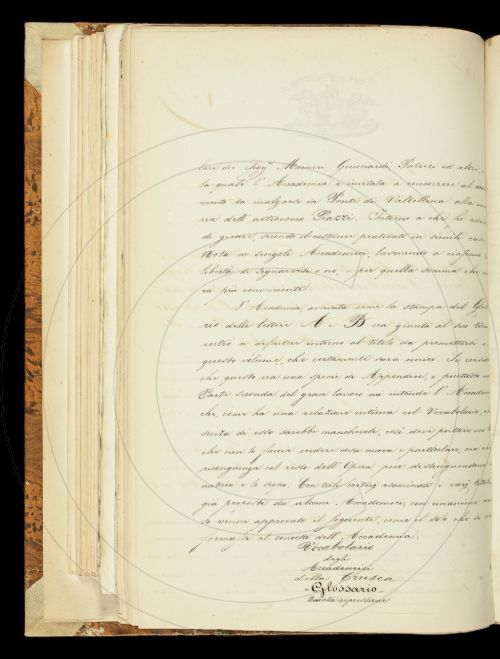 tare dei Sigri Maineri Guicciardi Patrizi ed altri,
la quale l'Accademia è invitata a concorrere al
mento da inalzarsi in Ponte di Valtellina alla
ria dell'astronomo Piazzi. Intorno a che fu
de girare, secondo il costume praticato in simili casi
Nota ai singoli Accademici, lasciando a ciascuno
libertà di segnarvisi o no, e per quella somma che
rà più conveniente.
L'Accademia avvisata come la stampa del
rio delle lettere A e B sia giunta al suo
entrò a discutere intorno al titolo da premettersi a
questo volume, che certamente sarà unico. Si
che questo, era una specie di Appendice, o piuttosto
Parte Seconda del gran lavoro cui intende l'
che, come ha una relazione intima col Vocabolario,
senza di esso sarebbe manchevole, così deve portare un
che non lo faccia credere cosa nuova e particolare, ma
ricongiunga col resto dell'Opera pur distinguendone
natura e lo scopo. Con tali criterj esaminati i varj
già proposti da alcuni Accademici, con unanime
to venne approvato il seguente, come il solo che si
formasse al concetto dell'Accademia.
Vocabolario
degli
Accademici
della Crusca
-Glossario-
Quinta impressione